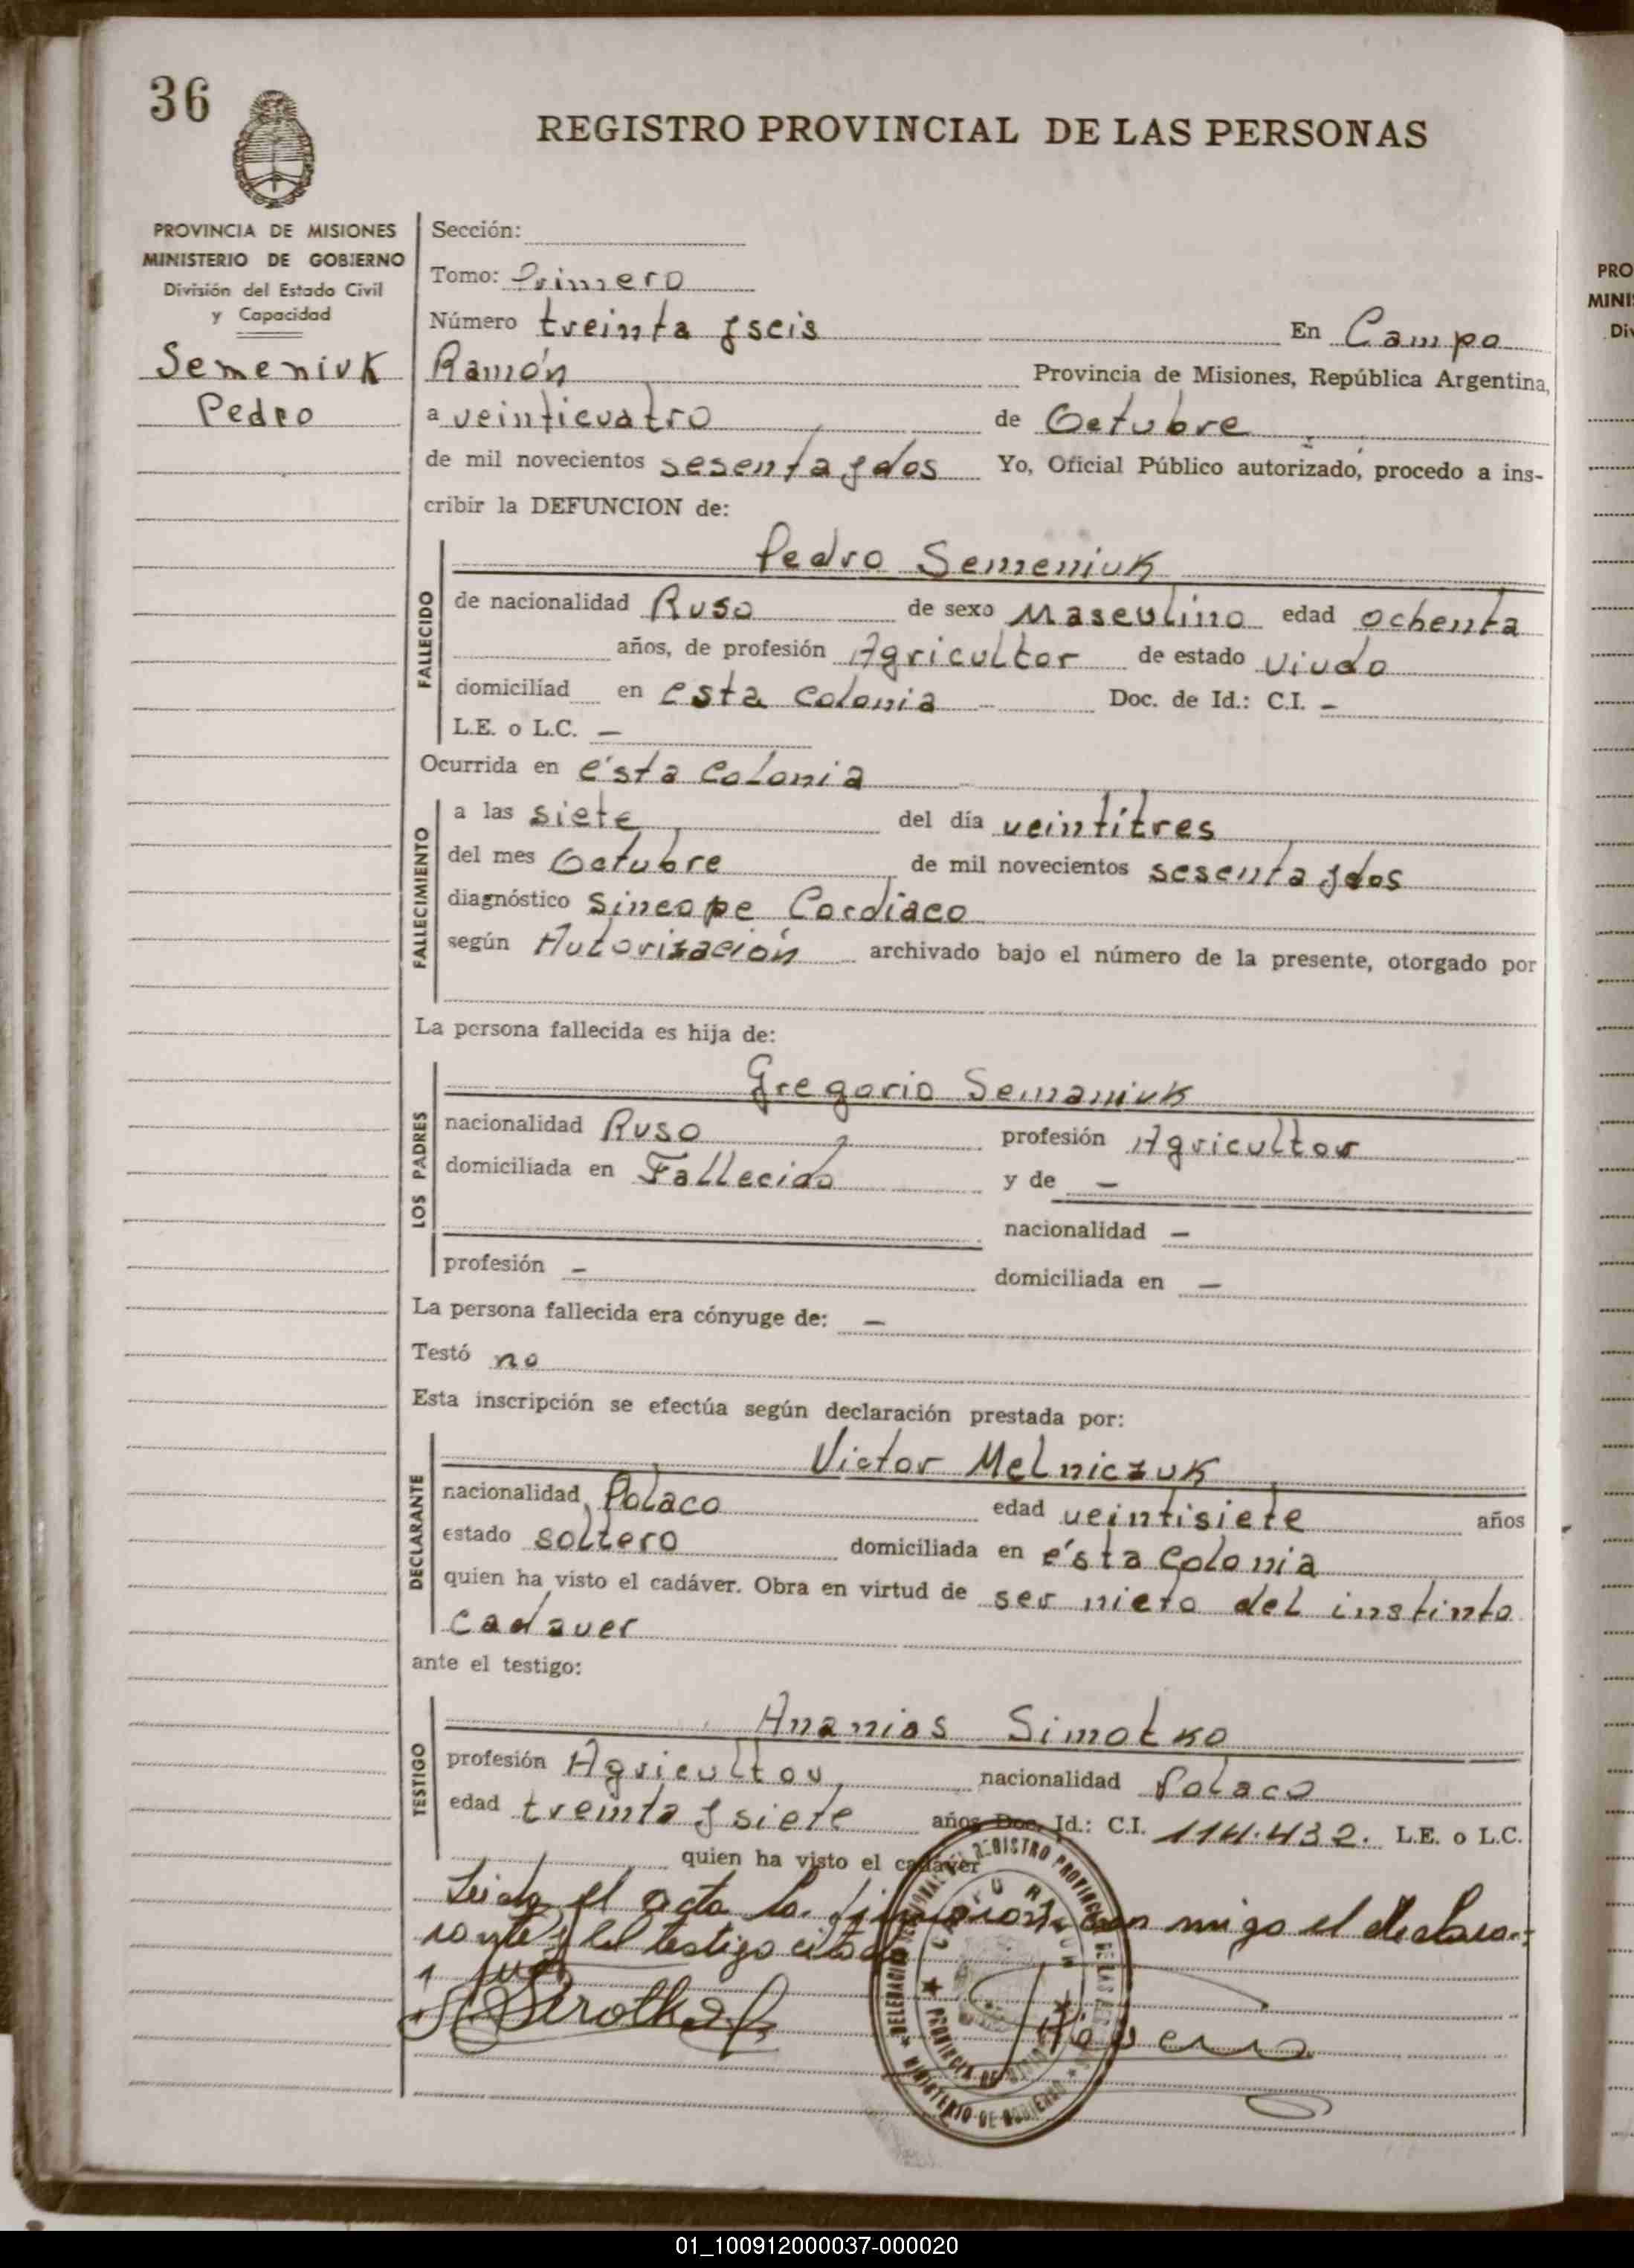 36
REGISTRO PROVINCIAL DE LAS PERSONAS
PROVINCIA DE MISIONES
MINISTERIO DE GOBIERNO
División del Estado Civil
y Capacidad
Semeniuk
Pedro
Sección:
Tomo: Primero
Número treinta y seis En Campo
Ramón Provincia de Misiones, República Argentina,
a veinticuatro de Octubre
de mil novecientos sesenta y dos Yo, Oficial Público autorizado, procedo a ins-
cribir la DEFUNCION de:
FALLECIDO
Pedro Semeniuk
de nacionalidad Ruso de sexo Masculino edad ochenta
años, de profesión Agricultor de estado viudo
domiciliad en esta colonia Doc. de Id.: C.I. –
L.E. o L.C. –
Ocurrida en ésta Colonia
FALLECIMIENTO
a las siete del día veintitres
del mes Octubre de mil novecientos sesenta y dos
diagnóstico Sincope Cordiaco
según Autorización archivado bajo el número de la presente, otorgado por
La persona fallecida es hija de:
LOS PADRES
Gregorio Semaniuk
nacionalidad Ruso profesión Agricultor
domiciliada en Fallecido y de –
nacionalidad –
profesión – domiciliada en –
La persona fallecida era cónyuge de: –
Testó no
Esta inscripción se efectúa según declaración prestada por:
DECLARANTE
Victor Melniczuk
nacionalidad Polaco edad veintisiete años
estado soltero domiciliada en ésta Colonia
quien ha visto el cadáver. Obra en virtud de ser nieto del instinto
cadaver
ante el testigo:
TESTIGO
Ananias Simotko
profesión Agricultor nacionalidad Polaco
edad treinta y siete años Doc. Id.: C.I. 114.432. L.E. o L.C.
quien ha visto el cadáver
Leida el acta la firmaron con migo el declara-
rante y el testigo citado
REGISTRO PROVINCIAL DE LAS
CAMPO RAMON
PROVINCIA DE MISIONES
MINISTERIO DE GOBIERNO
PRO
MINI
Div
01_100912000037-000020